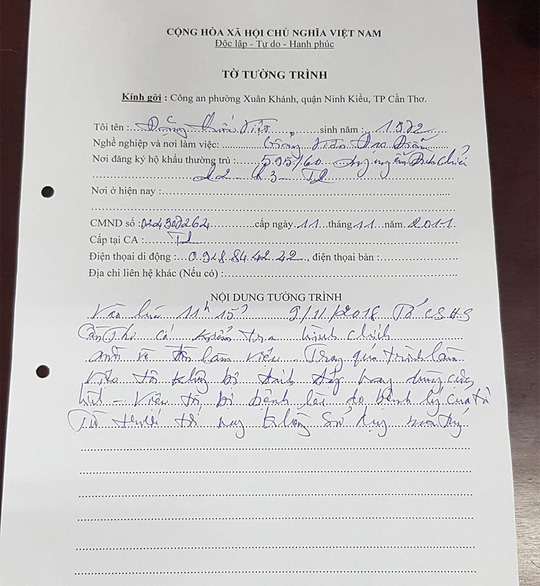 CỘNG HÒA XÃ HỘI CHỦ NGHĨA VIỆT NAM
Độc lập - Tự do - Hạnh phúc
TỜ TƯỜNG TRÌNH
Kính gởi : Công an phường Xuân Khánh, quận Ninh Kiều, TP Cần Thơ.
Tôi tên : sinh năm : 1972
Nghề nghiệp và nơi làm việc:
Nơi đăng ký hộ khẩu thường trú : 595/60
Nơi ở hiện nay :
CMND số : cấp ngày 11 tháng 11 năm 2011
Cấp tại CA :
Điện thoại di động : 0.918.84.42.22, điện thoại bàn :
Địa chỉ liên hệ khác (Nếu có) :
NỘI DUNG TƯỜNG TRÌNH
Vào lúc 11h 15' 9/11/2018 Tổ CSHS
kiểm tra hành chính
mời về làm việc Trong quá trình làm
việc tôi không bị đánh đập hay dùng
tôi bị bệnh là do bệnh lý của tôi
Từ trước tới nay không sử dụng ma túy